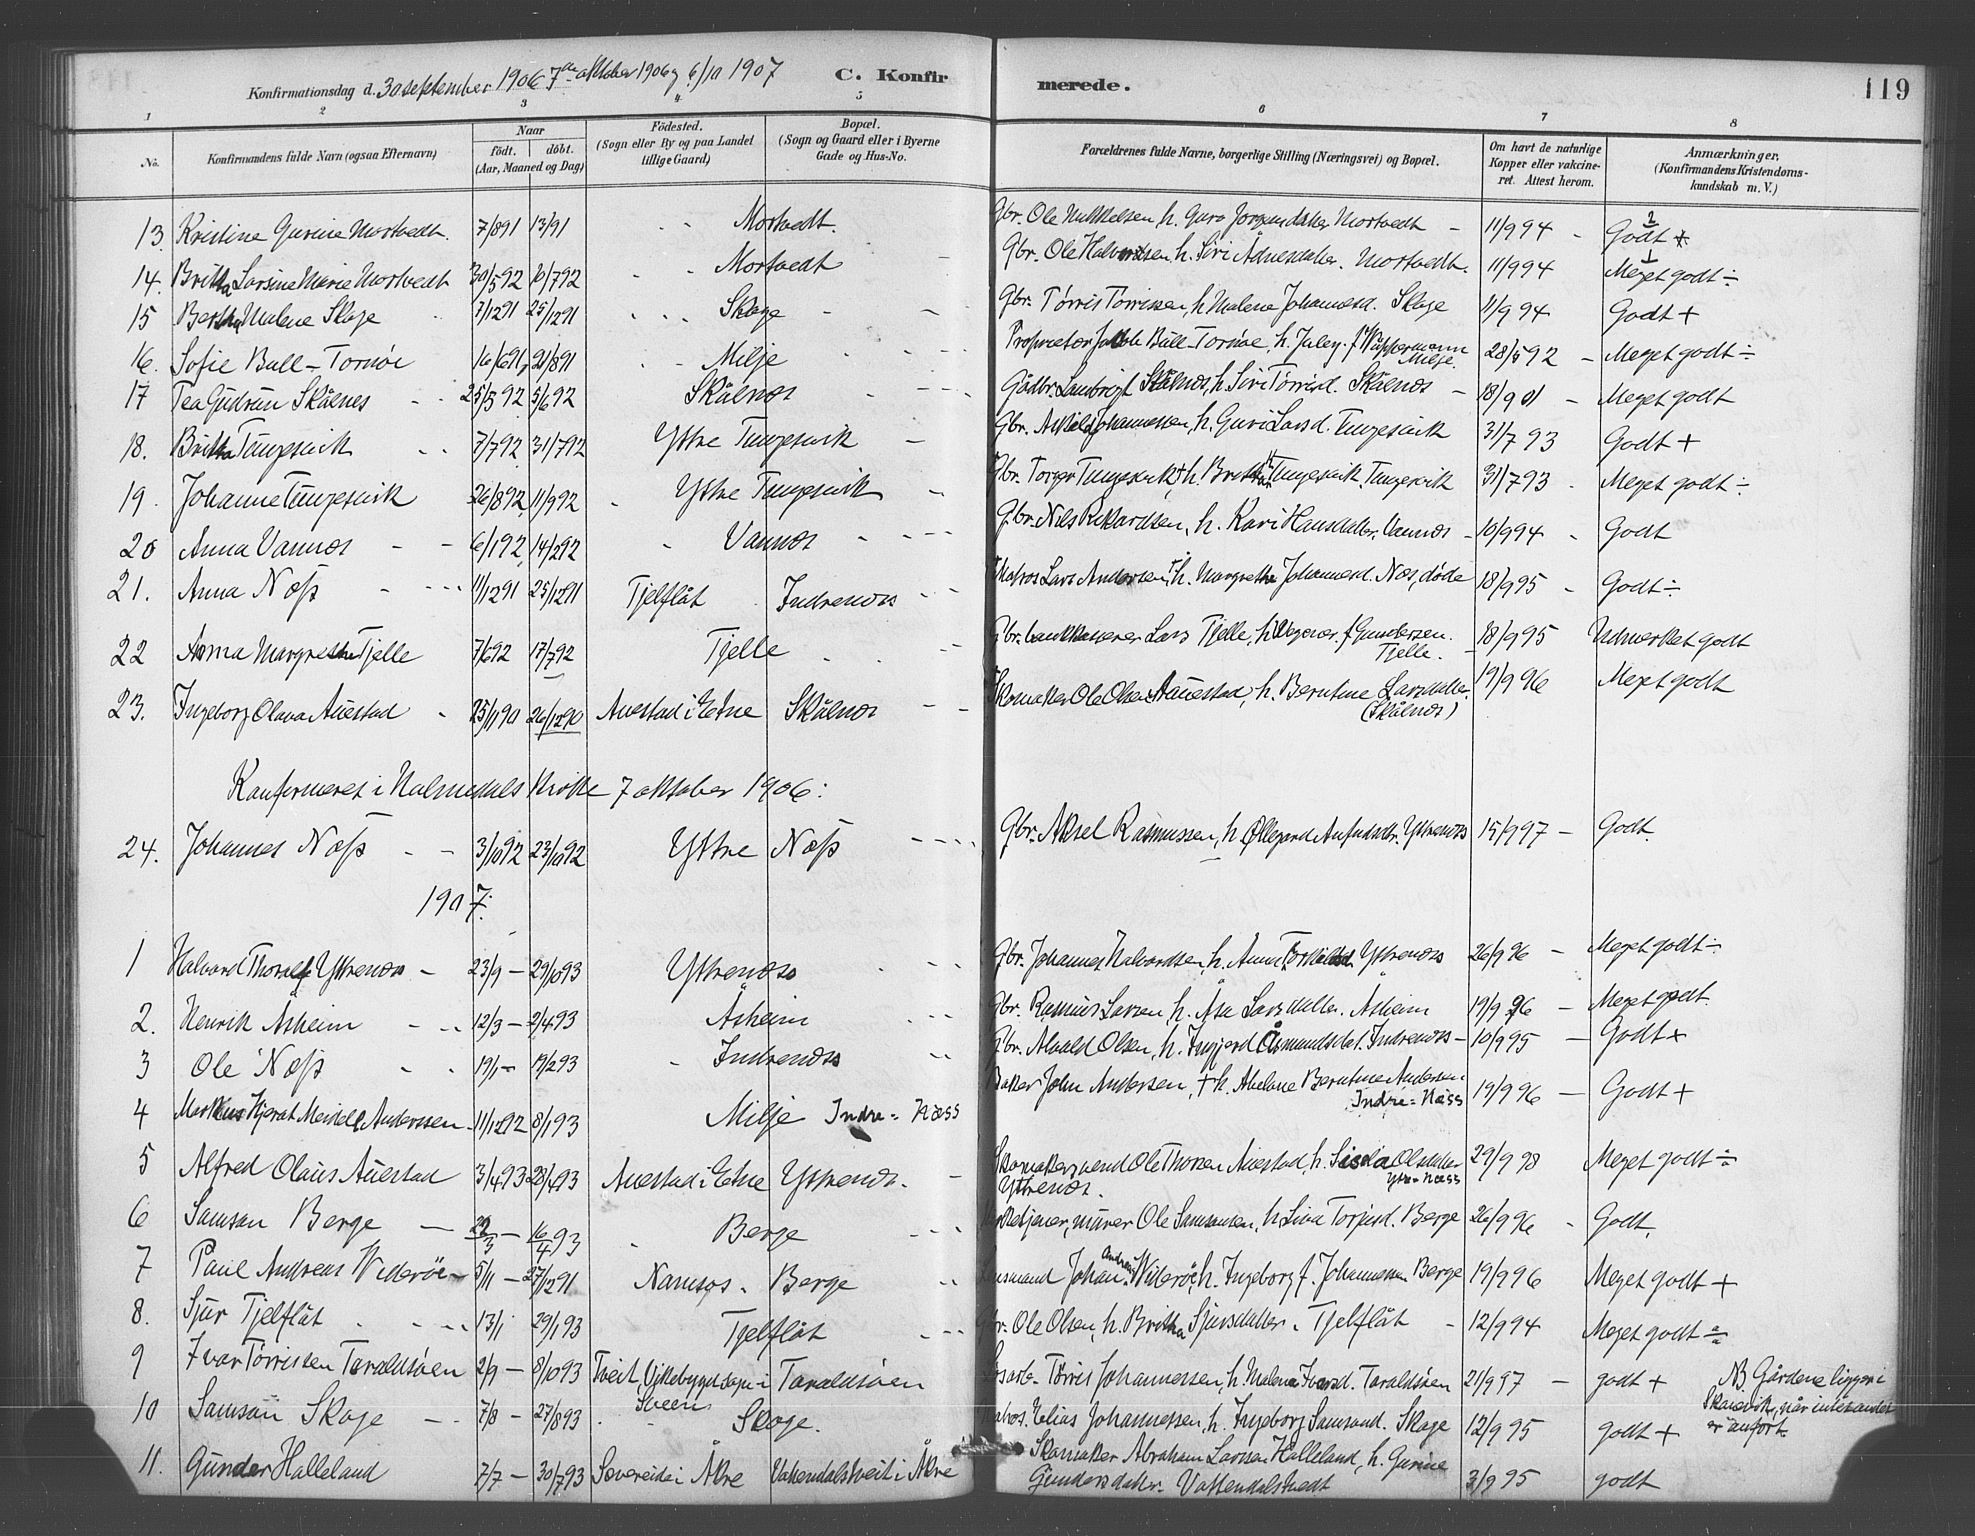 Konfirmationsdag d. 30 september 1906 7de oktober 1906 og 6/10 1907 C. Konfirmerede. 119
1 2 3 4 5 6 7 8
No. Konfirmandens fulde Navn (ogsaa Efternavn) Naar født. døbt. (Aar, Maaned og Dag) Fødested. (Sogn eller By og paa Landet tillige Gaard) Bopæl. (Sogn og Gaard eller i Byerne Gade og Hus-No. Forældrenes fulde Navne, borgerlige Stilling (Næringsvei) og Bopæl. Om havt de naturlige Kopper eller vakcineret. Attest herom. Anmærkninger, (Konfirmandens Kristendomskundskab m. V.)
13. Kristine Gurine Mortvedt. 7/8 91 13/91 Mortvedt. Gbr. Ole h. Guro Mortvedt 11/9 94 Godt +
14. Britha Larsine Marie Mortvedt 30/5 92 10/7 92 Mortvedt Gbr. Ole Halvorsen, h. Siri Mortvedt. 11/9 94 Meget godt ÷
15 Bertha Malene Skage 7/12 91 25/12 91 Skage Gbr. Tørris Tørrissen, h. Malene Johannesd. Skage 11/9 94 Godt +
16. Sofie Bull-Tornøe 16/6 91, 21/8 91 Milje Proprietær Jakob Bull-Tornøe, h. Milje. 28/5 92 Meget godt ÷
17 Tea Gudrun Skålnes 25/5 92 5/6 92 Skålnæs Gådbr. Skålnæs, h. Siri Tørrisd. Skålnæs 18/9 01 Meget godt
18. Britha Tungesvik 7/7 92 31/7 92 Ytre Tungesvik Gbr. Johannessen, h. Guri Larsd. Tungesvik 31/7 93 Godt +
19. Johanne Tungesvik 26/8 92, 11/9 92 Ytre Tungesvik Gbr. Torger Tungesvik, h. Britha Tungesvik, Tungesvik 31/7 93 Meget godt ÷
20 Anna Vannæs 6/1 92 14/2 92 Vannæs Gbr. Nils Rikardsen, h. Kari Hansdatter, Vannæs 10/9 94 Godt
21. Anna Næss 11/12 91 25/12 91 Tjelflåt Indrenæs Matros Lars Andersen, h. Margrethe Johannesd. Næs, døde 18/9 95 Godt ÷
22 Anna Margrethe Tjelle 7/6 92 17/7 92 Tjelle Gbr. Lars Tjelle, h. f. Gundersen. Tjelle. 18/9 95 Udmerket godt
23. Ingeborg Olava Auestad 25/11 90 26/12 90 Auestad i Etne Skålnæs Skomaker Ole Olsen Auestad, h. Berntine Larsdatter. (Skålnæs) 19/9 96 Meget godt
Konfirmeret i Holmedals kirke 7 oktober 1906:
24. Johannes Næss 3/10 92 23/10 92 Ytre Næss Gbr. Aksel Rasmussen, h. Øllegard Ytrenæs 15/9 97 Godt.
1907:
1 Halvard Thoralf Ytrenæs 23/9 29/10 93 Ytrenæs Gbr. Johannes Halvardsen, h. Anna Torkildsd. Ytrenæs 26/9 96 Meget godt ÷
2. Henrik Åsheim 12/3 2/4 93 Åsheim Gbr. Rasmus Larsen, h. Åsa Larsdatter. Åsheim 19/9 96 Meget godt
3 Ole Næss 19/1 19/2 93 Indrenæs Gbr. Alvald Olsen, h. Ingjerd Åsmundsdat. Indrenæs 10/9 95 Godt +
4 Markus Hjerat Meidell Anderssen 11/12 92 8/1 93 Milje Indre-Næss Baker John Andersen, + h. Abelone Berntine Andersen Indre-Næss 19/9 96 Godt +
5 Alfred Olaus Auestad 3/4 93 23/4 93 Auestad i Etne Ytrenæs. Skomakersvend Ole Thorsen Auestad, h. Olsdatter Ytrenæs. Ytre-Næss 29/9 98 Meget godt ÷
6 Samson Berge 22/3 16/4 93 Berge Kirketjener, murer Ole Samsonsen, h. Lina Torjusd. Berge 26/9 96 Godt.
7 Paul Andreas Widerøe 5/11 27/12 91 Namsos. Berge Lensmand Johan Andreas Widerøe, h. Ingeborg f. Johannessen. Berge 19/9 96 Meget godt +
8. Sjur Tjelflåt 13/1 29/1 93 Tjelflåt Gbr. Ole Olsen, h. Britha Sjursdatter. Tjelflåt 12/9 94 Meget godt ÷
9 Ivar Tørrissen Taraldsøen 2/9 8/10 93 Tveit, Vikebygd sogn i Sveen Taraldsøen Tørris Johannessen, h. Malena Ivarsd. Taraldsøen 21/9 97 godt + NB Gårdene ligger i Skånevik, når intet andet er anført.
10 Samson Skage 7/8 27/8 93 Skage. Elias Johannessen, h. Ingeborg Samsond. Skage 12/9 95 godt +
11. Gunder Halleland 7/7 30/7 93 Søvereide i Åkre Vakendalstveit i Åkre Skomaker Abraham Larssen Halleland, h. Gurine Gundersdatter. Vattendalstvedt 3/9 95 godt